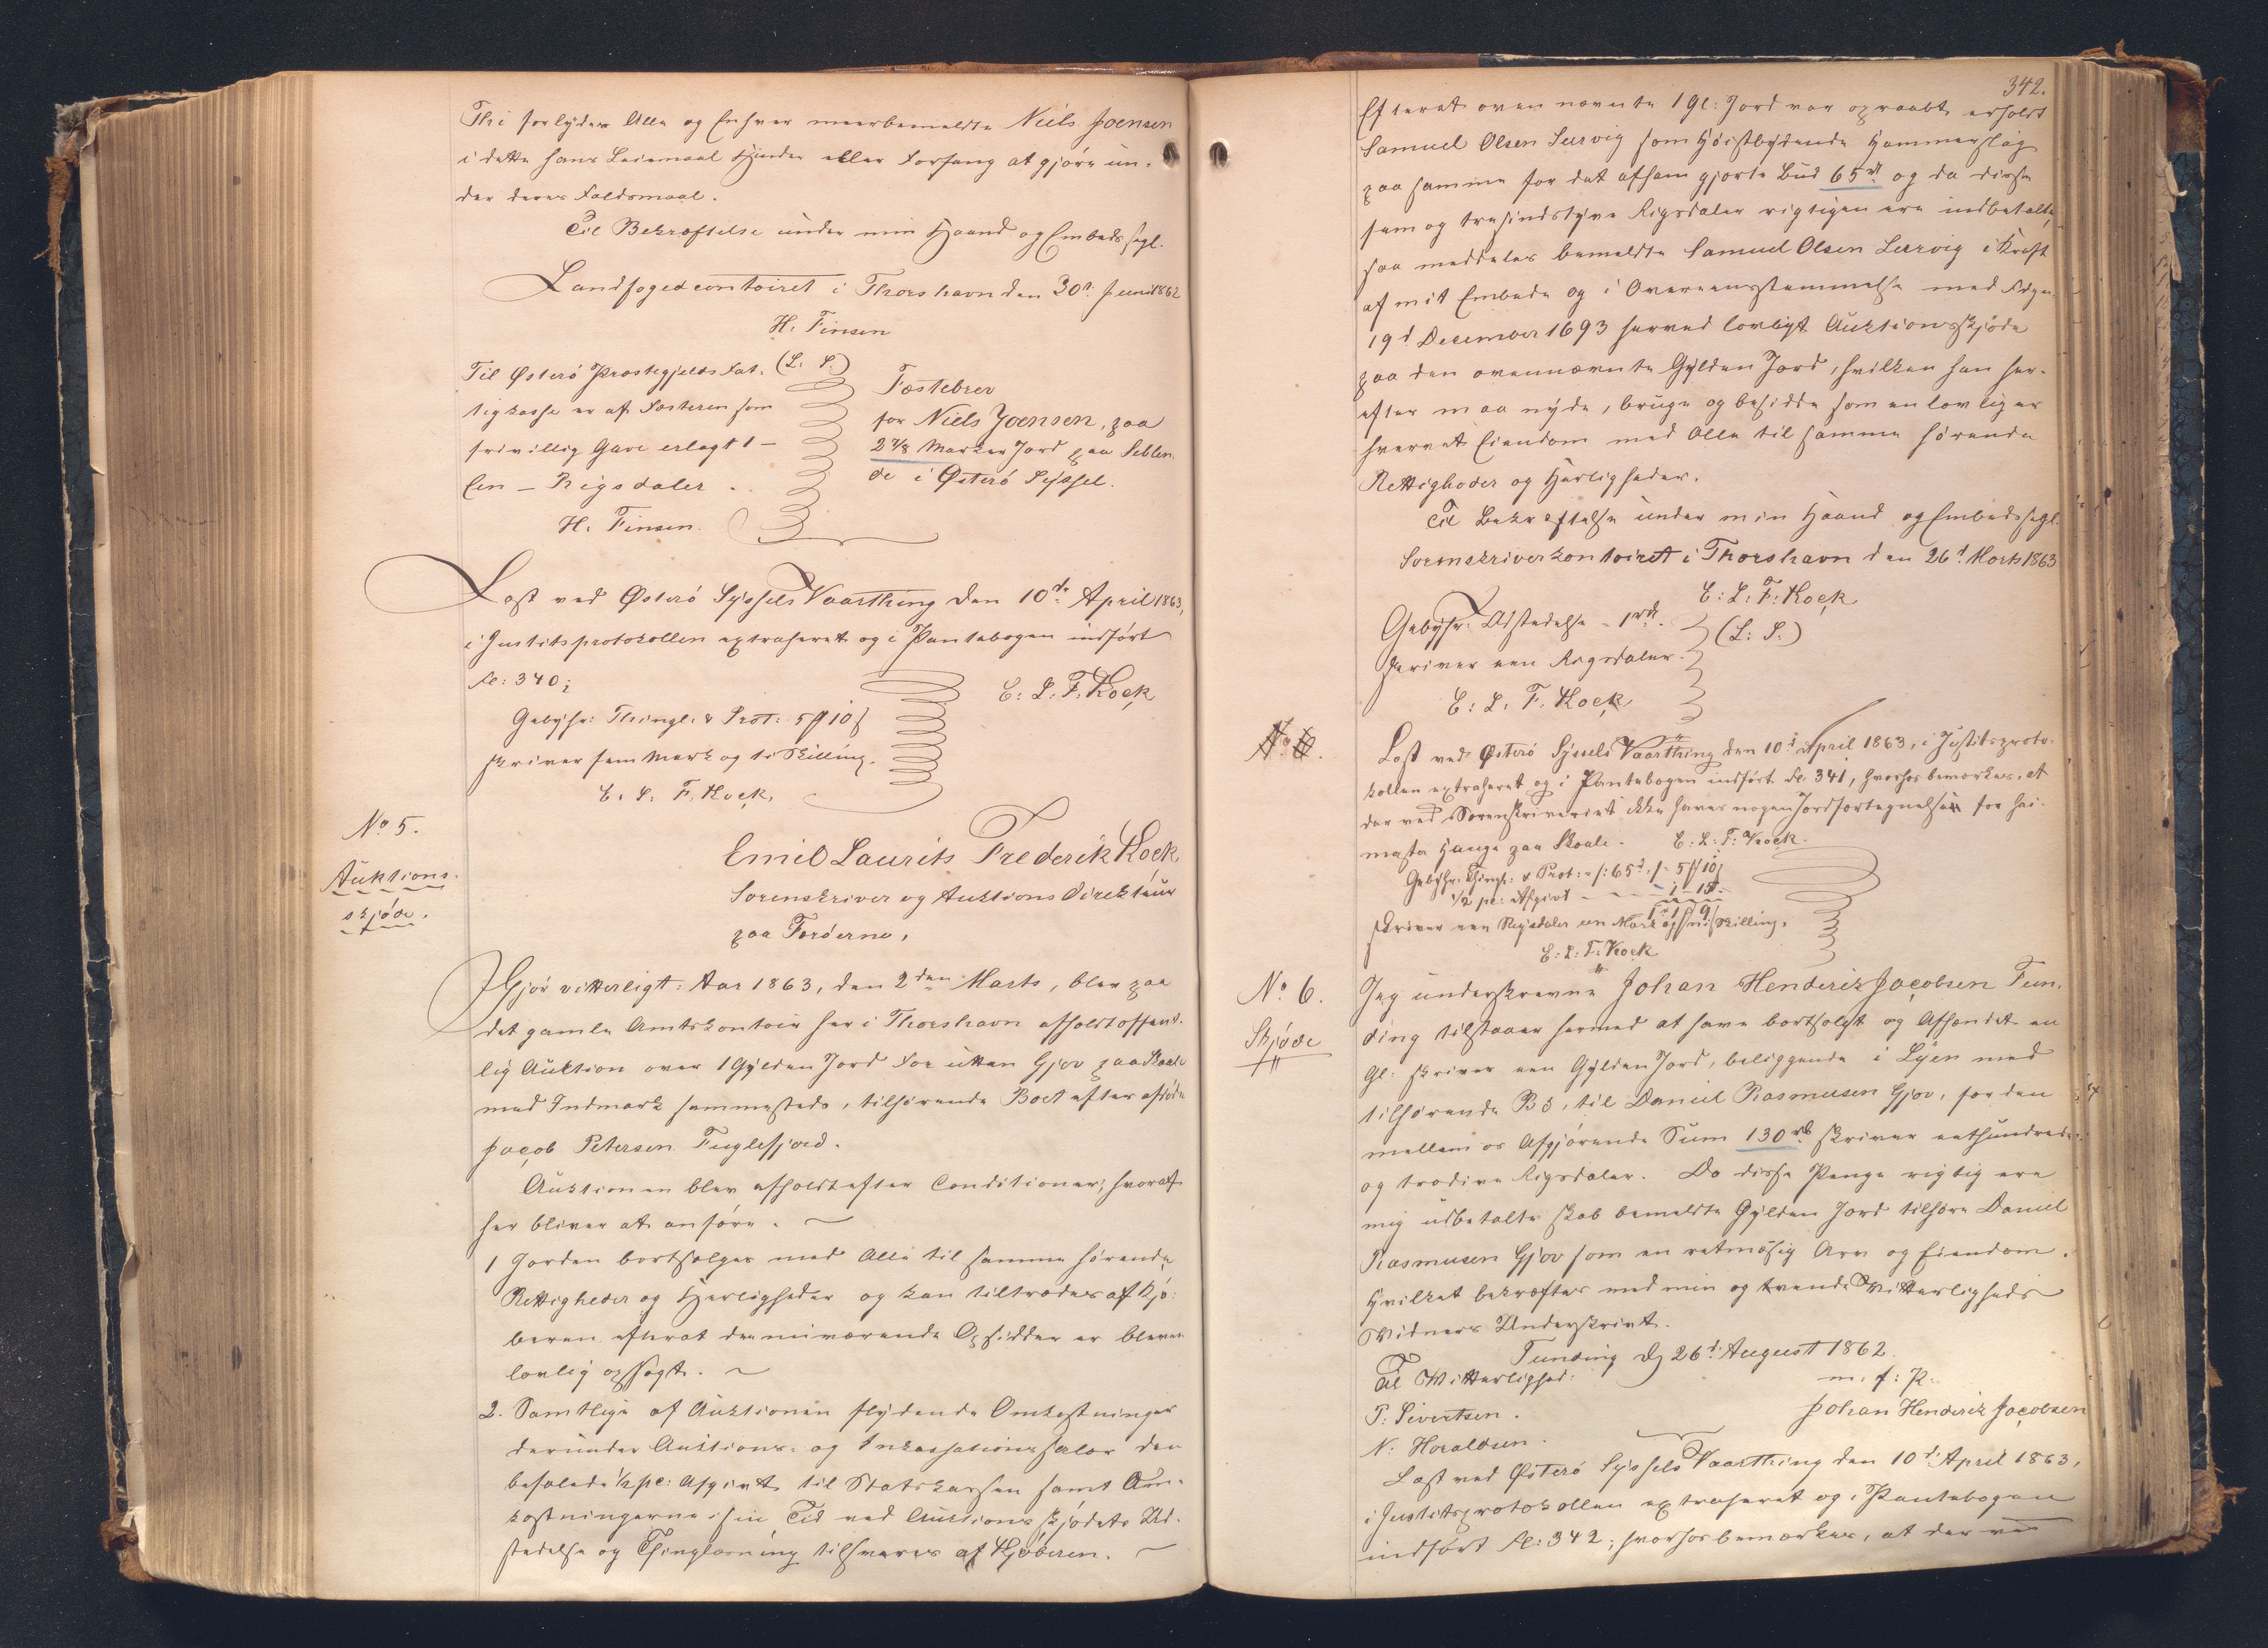 Thi forbydes Alle og Enhver meerbemeldte Niels Joensen
i dette hans Leiemaal Hinder eller Forfang at gjöre un-
der deres Faldsmaal.
Til Bekræftelse under min Haand og Embeds Segl.
Landfogedcontoiret i Thorshavn den 30te Juni 1862
H. Finsen
(L: S:)
Til Østerö Præstegjelds Fat-
tigkasse er af Fæsteren som
frivillig Gave erlagt 1 –
Een – Rigsdaler.
H. Finsen.
Fæstebrev
for Niels Joensen, paa
2 7/8 Marker Jord paa Selle-
de i Østerö Syssel.
Læst ved Østerö Syssels Vaarthing den 10de April 1863,
i Justitsprotokollen extraheret og i Pantebogen indfört
Fl: 340;
E: L: F: Kock
Gebyhr: Thingl: & Prot: 5 ℳ 10 ß
skriver fem Mark og ti Skilling.
E. L: F. Kock.
No 5.
Auktions-
skjöde.
Emil Laurits Frederik Kock
Sorenskriver og Auktions Direkteur
paa Færöerne,
Gjör vitterligt: Aar 1863, den 2den Marts, blev paa
det gamle Amtskontoir her i Thorshavn afholdt offent-
lig Auktion over 1 Gylden Jord for uttan Gjov paa Skaale
med Indmark sammesteds, tilhörende Boet efter afdöde
Jacob Petersen Fuglefjord.
Auktionen blev afholdt efter Conditioner, hvoraf
her bliver at anföre.
1 Jorden bortsælges med Alle til samme hörende
Rettigheder og Herligheder og kan tiltrædes af Kjö-
beren efterat den nuværende Opsidder er bleven
lovlig opsagt.
2. Samtlige af Auktionen flydende Omkostninger
derunder Auktions- og Inkassationssalær den
befalede 1/2 pc: Afgivt til Statskassen samt Om-
kostningerne i sin Tid ved Auktions Skjödets Ud-
stedelse og Thinglæsning tilsvares af Kjöberen.
342.
Efterat ovennævnte 1 Gl: Jord var opraabt erholdt
Samuel Olsen Lervig som Höistbydende Hammerslag
paa samme for det af ham gjorte Bud 65 rd og da disse
fem og tresindstyve Rigsdaler rigtigen ere indbetalte,
saa meddeles bemeldte Samuel Olsen Lervig i Kraft
af mit Embede og i Overeensstemmelse med Fdgn.
19d December 1693 herved lovligt Auktionsskjöde
paa den ovennævnte Gylden Jord, hvilken han her-
efter maa nyde, bruge og besidde som en lovlig er-
hvervet Eiendom med Alle til samme hörende
Rettigheder og Herligheder.
Til Bekræftelse under min Haand og Embedssegl.
Sorenskriverkontoiret i Thorshavn den 26d Marts 1863
E: L: F: Kock
(L: S:)
Gebyhr: Udstedelse – 1 rd.
skriver een Rigsdaler.
E: L. F. Kock
Læst ved Østerö Syssels Vaarthing den 10d April 1863, i Justitsproto-
kollen extraheret og i Pantebogen indfört Fl. 341, hvorhos bemærkes, at
der ved Sorenskriveriet ikke haves nogen Jordfortegnelse for Hei-
masta Hauge paa Skaale. E: L: F: Kock.
Gebyhr: Thingl: & Prot: – /: 65 d :/ – 5 ℳ 10 ß
1/2 pc: Afgivt – – – 1 - 15 -
skriver een Rigsdaler en Mark og ni Skilling.
E: L: F: Kock
No 6.
Skjöde
Jeg underskrevne Johan Henderik Jacobsen Fun-
ding tilstaaer hermed at have bortsolgt og Afhændet en
Gl: skriver een Gylden Jord, beliggende i Lyen med
tilhörende Bö, til Daniel Rasmusen Gjov, for den
mellem os Afgjörende Sum 130 rd skriver eethundrede
og tredive Rigsdaler. Da disse Penge rigtig ere
mig udbetalte skal bemeldte Gylden Jord tilhöre Daniel
Rasmusen Gjov som en retmæsig Arv og Eiendom.
Hvilket bekræftes med min og tvende Vitterligheds
Vidners Underskrivt.
Funding dj 26d August 1862.
Til Vitterlighed:
P: Sivertsen.
N: Haraldsen.
m. f: P:
Johan Henderik Jacobsen
Læst ved Østerö Syssels Vaarthing den 10d April 1863,
i Justitsprotokollen extraheret og i Pantebogen
indfört Fl: 342; hvorhos bemærkes, at der ved